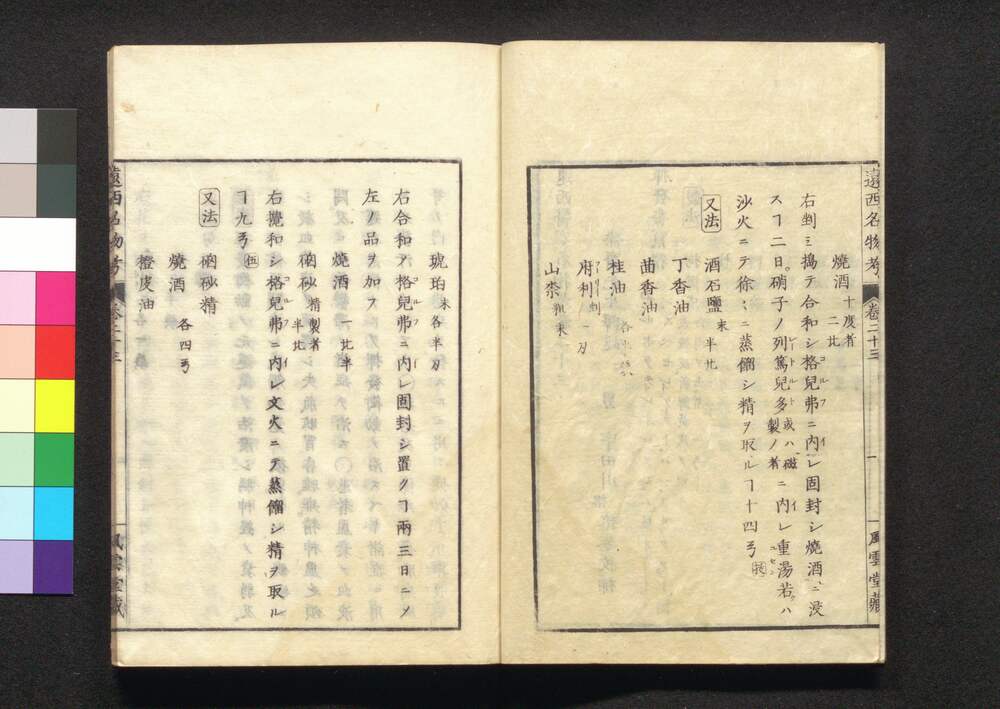 遠西名物考
卷二十三
一
風雲堂藏
燒酒 十度者 二比
右剉ミ搗テ合和シ格兒弗ニ内レ固封シ燒酒ニ浸
スヿ二日。硝子ノ列篤兒多 或ハ磁製ノ者 ニ内レ重湯若クハ
沙火ニテ徐ニ蒸餾シ精ヲ取ルヿ十四弓
又法
酒石鹽 末 半比
丁香油
茴香油
桂油
琥珀 末 各半刃
右合和ア格兒弗ニ内レ固封シ置クヿ兩三日ニメ
左ノ品ヲ加フ
燒酒 一比半
硇砂精 製者 半比
右攪和シ格兒弗ニ内レ文火ニテ蒸餾シ精ヲ取ル
ヿ九弓
又法
硇砂精
燒酒 各四弓
橙皮油
遠西名物考
卷二十三
風雲堂藏